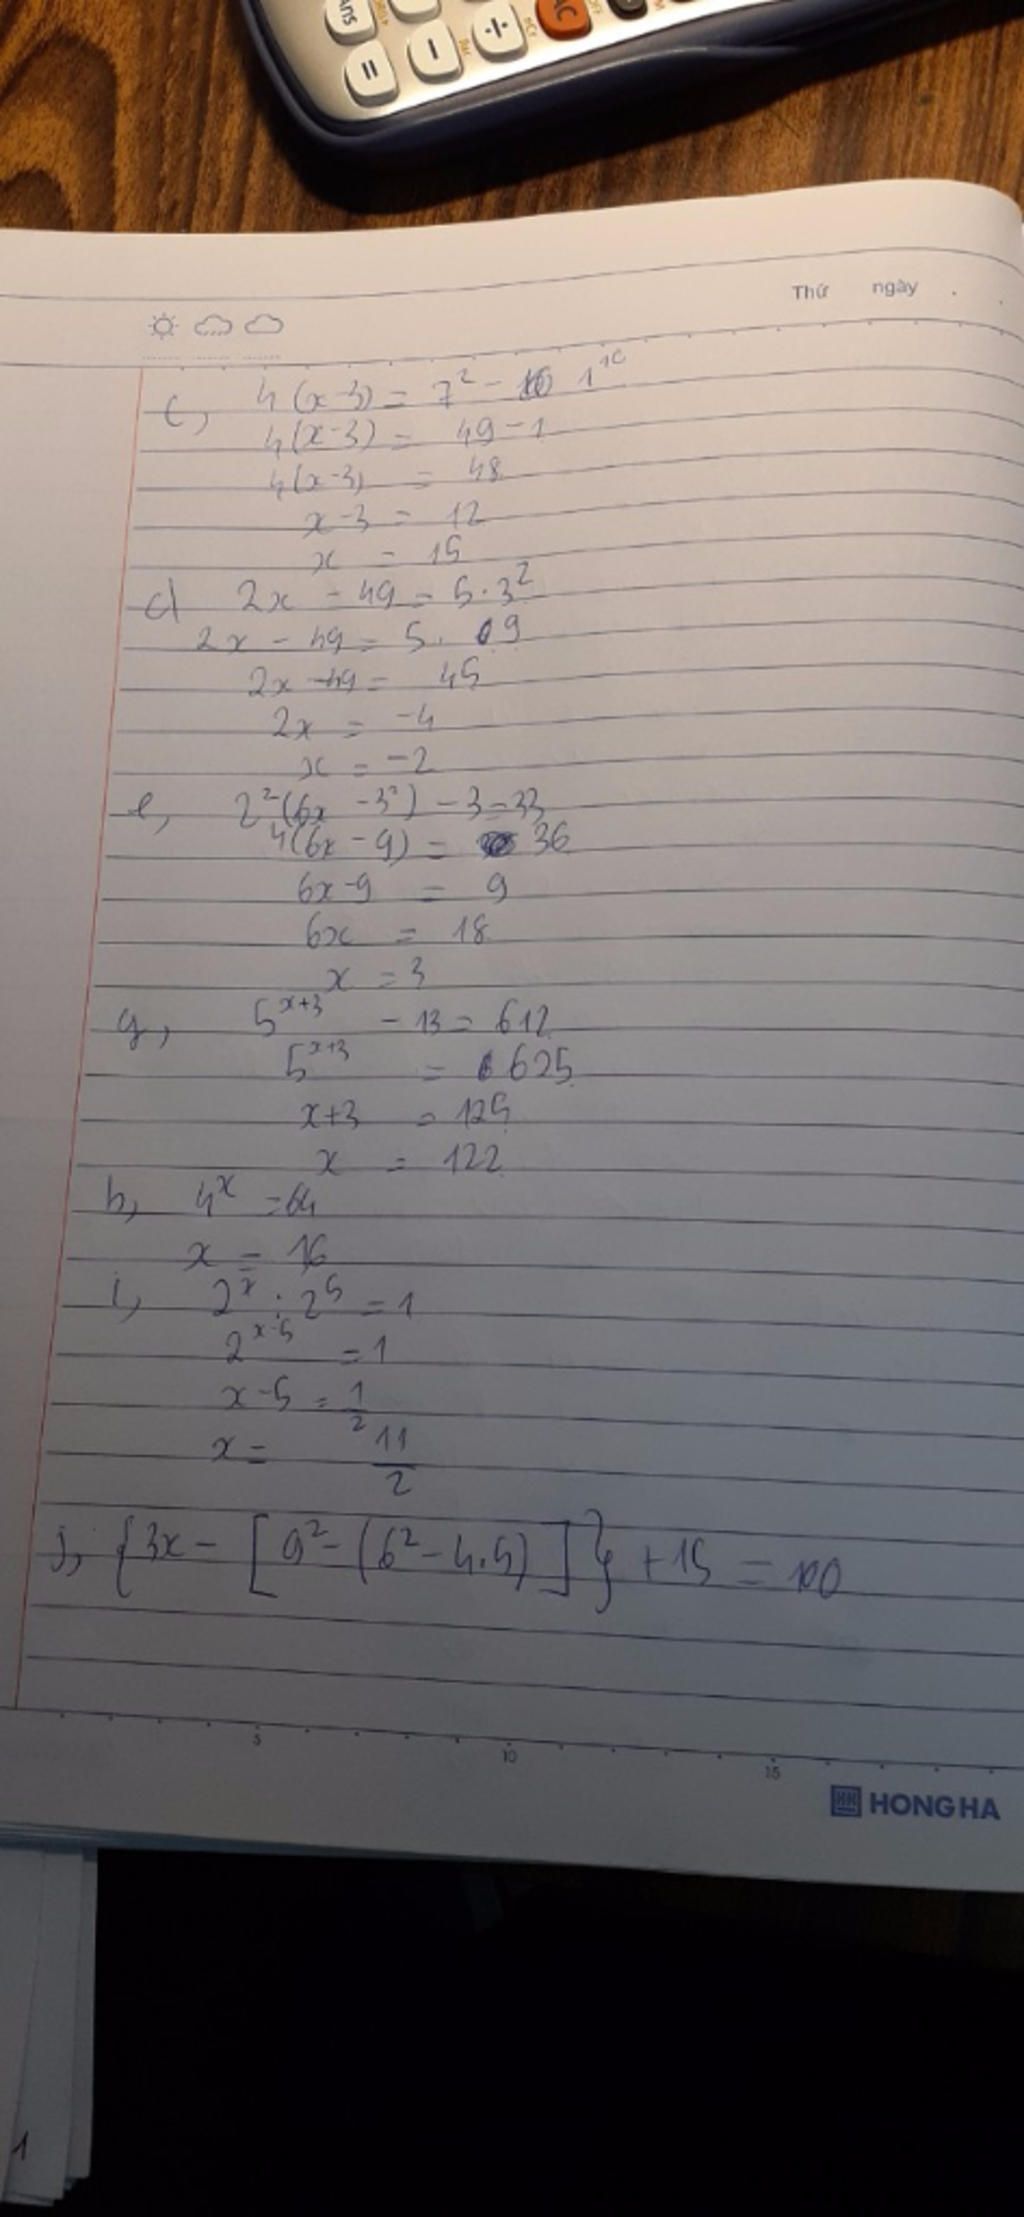 Ans
=
−
÷
AC
Thứ ngày
c, 4(x-3) = 7² - 1¹⁰
4(x-3) = 49-1
4(x-3) = 48
x-3 = 12
x = 15
d 2x - 49 = 5.3²
2x - 49 = 5. 9
2x-49 = 45
2x = -4
x = -2
e, 2²(6x - 3²) - 3 = 33
4(6x - 9) = 36
6x-9 = 9
6x = 18
x = 3
g, 5ˣ⁺³ - 13 = 612
5ˣ⁺³ = 625
x+3 = 125
x = 122
h, 4ˣ = 64
x = 16
i, 2ˣ : 2⁵ = 1
2ˣ⁻⁵ = 1
x-5 = 1/2
x = 11/2
j, {3x - [9² - (6² - 4.5)]} + 15 = 100
5 10 15
HONG HA
1